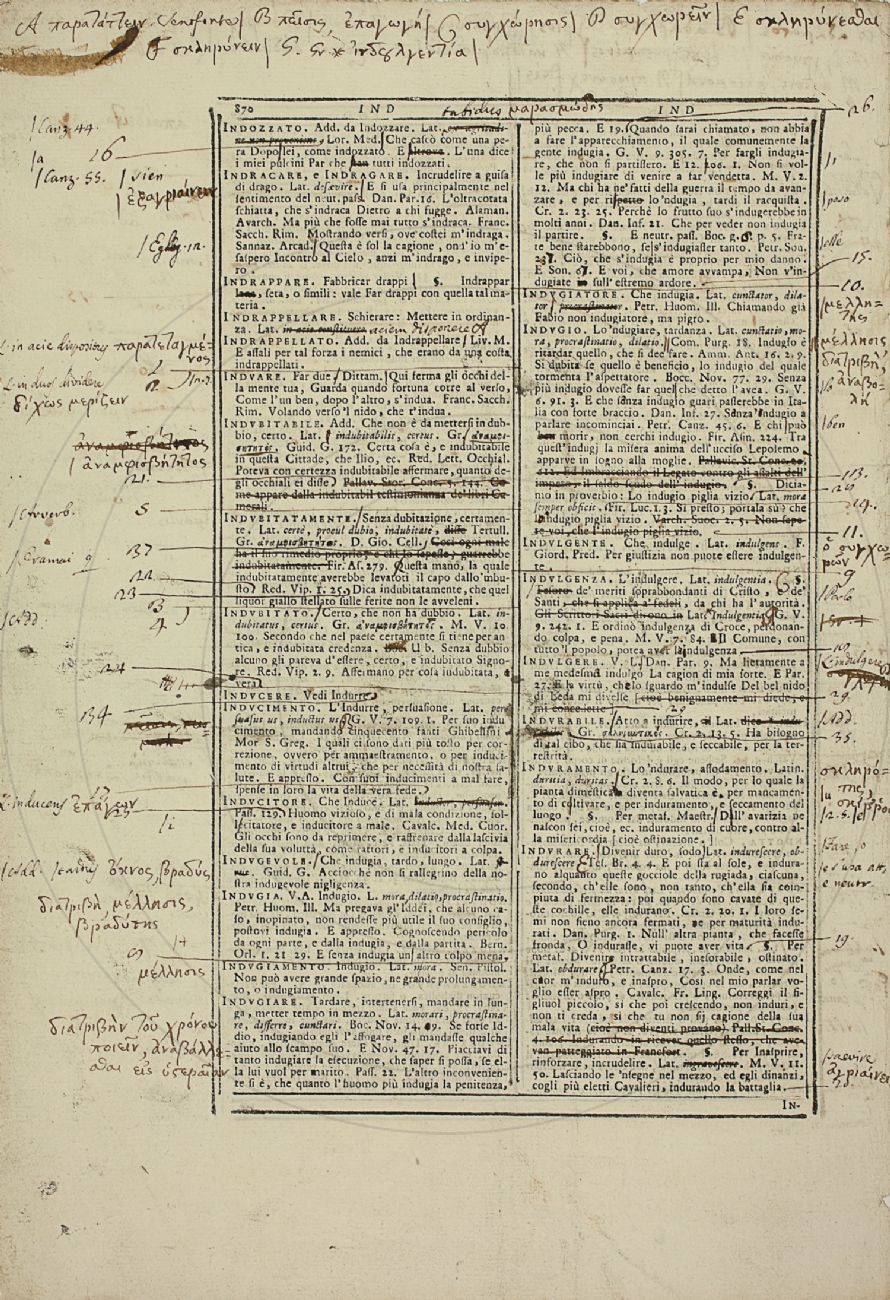 A παρατάττειν Senofonte | B πεῖσις, ἐπαγωγή | C συγχώρησις | D συγχωρεῖν | E σκληρύνεσθαι
F σκληρύνειν | G.
870 IND tabidus μαρασμώδης IND
INDOZZATO. Add. da Indozzare. Lat.
Lor. Med. Che cascò come una pe-
ra Dopo lei, come indozzato. E altrove. L'una dice
i miei pulcini Par che sian tutti indozzati.
INDRACARE, e INDRAGARE. Incrudelire a guisa
di drago. Lat. desævire. E si usa principalmente nel
sentimento del neut. pass. Dan. Par. 16. L'oltracotata
schiatta, che s'indraca Dietro a chi fugge. Alaman.
Avarch. Ma più che fosse mai tutto s'indraca. Franc.
Sacch. Rim. Mostrando versi, ove costei m'indraga.
Sannaz. Arcad. Questa è sol la cagione, ond'io m'e-
saspero Incontro al Cielo, anzi m'indrago, e invipe-
ro.
INDRAPPARE. Fabbricar drappi §. Indrappar
lana, seta, o simili: vale Far drappi con quella tal ma-
teria.
INDRAPPELLARE. Schierare: Mettere in ordinan-
za. Lat. in acie constituere aciem disponere A
INDRAPPELLATO. Add. da Indrappellare. Liv. M.
E assali per tal forza i nemici, che erano da una costa
indrappellati.
INDVARE. Far due. Dittam. Qui ferma gli occhi del-
la mente tua, Guarda quando fortuna corre al verso,
Come l'un ben, dopo l'altro, s'indua. Franc. Sacch.
Rim. Volando verso 'l nido, che t'indua.
INDVBITABILE. Add. Che non è da mettersi in dub-
bio, certo. Lat. indubitabilis, certus. Gr. ἀναμφισ-
βήτητος. Guid. G. 172. Certa cosa è, e indubitabile
in questa Cittade, che Ilio, ec. Red. Lett. Occhial.
Poteva con certezza indubitabile affermare, quanto de-
gli occhiali ei disse. Pallav. Stor. Conc. 3. 144. Co-
me appare dalla indubitabil testimonianza de'libri Ca-
merali.
INDVBITATAMENTE. Senza dubitazione, certamen-
te. Lat. certè, procul dubio, indubitatè, disse Tertull.
Gr. ἀναμφισβητήτως. D. Gio. Cell. Così ogni male
ha il suo rimedio proprio, e chi lo sapesse, guarrebbe
indubitatamente. Fir. As. 279. Questa mano, la quale
indubitatamente averebbe levatoti il capo dallo 'mbu-
sto. Red. Vip. 1. 25. Dica indubitatamente, che quel
liquor giallo stellato sulle ferite non le avveleni.
INDVBITATO. Certo, che non ha dubbio. Lat. in-
dubitatus, certus. Gr. ἀναμφισβήτητος. M. V. 10.
100. Secondo che nel paese certamente si tiene per an-
tica, e indubitata credenza. Bocc. U b. Senza dubbio
alcuno gli pareva d'essere, certo, e indubitato Signo-
re. Red. Vip. 2. 9. Affermano per cosa indubitata, e
vera.
INDVCERE. Vedi Indurre.
INDVCIMENTO. L'Indurre, persuasione. Lat. per-
suasus us, inductus us. G. V. 7. 109. 1. Per suo indu-
cimento, mandando cinquecento fanti Ghibellini
Mor. S. Greg. I quali ci sono dati più tosto per cor-
rezione, ovvero per ammaestramento, o per induci-
mento di virtudi altrui, che per necessità di nostra sa-
lute. E appresso. Con suoi inducimenti a mal fare,
spense in loro la vita della vera fede.
INDVCITORE. Che Induce. Lat.
Pass. 129. Huomo vizioso, e di mala condizione, sol-
lecitatore, e inducitore a male. Cavalc. Med. Cuor.
Gli occhi sono da reprimere, e raffrenare dalla lascivia
della sua voluttà, come rattori, e inducitori a colpa.
INDVGEVOLE. Che indugia, tardo, lungo. Lat.
Guid. G. Acciocchè non si rallegrino della no-
stra indugevole nigligenza.
INDVGIA. V. A. Indugio. L. mora, dilatio, procrastinatio.
Petr. Huom. Ill. Ma pregava gl'Iddei, che alcuno ca-
so, inopinato, non rendesse più utile il suo consiglio,
postovi indugia. E appresso. Cognoscendo pericolo
da ogni parte, e dalla indugia, e dalla partita. Bern.
Orl. 1. 21. 29. E senza indugia un'altro colpo mena.
INDVGIAMENTO. Indugio. Lat. mora. Sen. Pistol.
Non può avere grande spazio, ne grande prolungamen-
to, o indugiamento.
INDVGIARE. Tardare, intertenersi, mandare in lun-
ga, metter tempo in mezzo. Lat. morari, procrastina-
re, differre, cunctari. Boc. Nov. 14. 9. Se forse Id-
dio, indugiando egli l'affogare, gli mandasse qualche
aiuto allo scampo suo. E Nov. 47. 17. Piacciavi di
tanto indugiare la esecuzione, che saper si possa, se el-
la lui vuol per marito. Pass. 22. L'altro inconvenien-
te si è, che quanto l'huomo più indugia la penitenza,
più pecca. E 19. Quando sarai chiamato, non abbia
a fare l'apparecchiamento, il quale comunemente la
gente indugia. G. V. 9. 305. 7. Per fargli indugia-
re, che non si partissero. E 12. 106. 1. Non si vol-
le più indugiare di venire a far vendetta. M. V. 2.
12. Ma chi ha ne'fatti della guerra il tempo da avan-
zare, e per rispetto lo 'ndugia, tardi il racquista.
Cr. 2. 23. 25. Perchè lo frutto suo s'indugerebbe in
molti anni. Dan. Inf. 21. Che per veder non indugia
il partire. §. E neutr. pass. Boc. g. 6. p. 5. Fra-
te bene starebbono, se s'indugiasser tanto. Petr. Son.
Ciò, che s'indugia è proprio per mio danno.
E Son. 67. E voi, che amore avvampa, Non v'in-
dugiate in sull'estremo ardore.
INDVGIATORE. Che indugia. Lat. cunctator, dila-
tor, procrastinator. Petr. Huom. Ill. Chiamando già
Fabio non indugiatore, ma pigro.
INDVGIO. Lo 'ndugiare, tardanza. Lat. cunctatio, mo-
ra, procrastinatio, dilatio. Com. Purg. 18. Indugio è
ritardar quello, che si dee fare. Amm. Ant. 16. 2. 9.
Si dubita se quello è beneficio, lo indugio del quale
tormenta l'aspettatore. Bocc. Nov. 77. 29. Senza
più indugio dovesse far quel che detto l'avea. G. V.
6. 91. 3. E che senza indugio guari passerebbe in Ita-
lia con forte braccio. Dan. Inf. 27. Sanza indugio a
parlare incominciai. Petr. Canz. 45. 6. E chi può
ben morir, non cerchi indugio. Fir. Asin. 224. Tra
quest'indugj la misera anima dell'ucciso Lepolemo
apparve in sogno alla moglie. Pallavic. St. Conc.
612. Ed Imbracciando il Legato contro gli assalti dell'
impeto, il saldo scudo dell' indugio. §. Dicia-
mo in proverbio: Lo indugio piglia vizio. Lat. mora
semper obficit. Fir. Luc. 1. 3. Si presto; portala su; che
lo indugio piglia vizio. Varch. Suoc. 2. 5. Non sape-
te voi, che l'indugio piglia vizio.
INDVLGENTE. Che indulge. Lat. indulgens. F.
Giord. Pred. Per giustizia non puote essere indulgen-
te.
INDVLGENZA. L'indulgere. Lat. indulgentia. C §.
Tesoro de' meriti soprabbondanti di Cristo, e de'
Santi, che si applica a' fedeli, da chi ha l'autorità.
Gli Scrittori Sacri dicono in Lat. Indulgentia. G. V.
9. 242. 1. E ordinò indulgenza di Croce, perdonan-
do colpa, e pena. M. V. 7. 84. Il Comune, con
tutto 'l popolo, potea aver la indulgenza.
INDVLGERE. V. L. Dan. Par. 9. Ma lietamente a
me medesma indulgo La cagion di mia sorte. E Par.
27. E la virtù, che lo sguardo m'indulse Del bel nido
di Leda mi divelse [cioè benignamente mi diede, e
mi concedette]
INDVRABILE. Atto a indurire, Lat.
Gr. Cr. 2. 13. 5. Ha bisogno
di tal cibo, che sia indurabile, e seccabile, per la ter-
restrità.
INDVRAMENTO. Lo 'ndurare, assodamento. Latin.
duritia, duritas. Cr. 2. 8. 6. Il modo, per lo quale la
pianta dimestica diventa salvatica è, per mancamen-
to di cultivare, e per induramento, e seccamento del
luogo. §. Per metaf. Maestr. Dall'avarizia ne
nascon sei, cioè, ec. induramento di cuore, contro al-
la misericordia [cioè ostinazione.]
INDVRARE. Divenir duro, sodo. Lat. indurescere, ob-
durescere E Tes. Br. 4. 4. E poi sta al sole, e indura-
no alquanto queste gocciole della rugiada, ciascuna,
secondo, ch'elle sono, non tanto, ch'ella sia com-
piuta di fermezza: poi quando sono cavate di que-
ste cochille, elle indurano. Cr. 2. 20. 1. I loro se-
mi non sieno ancora fermati, ne per maturità indu-
rati. Dan. Purg. 1. Null' altra pianta, che facesse
fronda, O indurasse, vi puote aver vita. §. Per
metaf. Divenire intrattabile, inesorabile, ostinato.
Lat. obdurare. Petr. Canz. 17. 3. Onde, come nel
cuor m'induro, e inaspro, Così nel mio parlar vo-
glio esser aspro. Cavalc. Fr. Ling. Correggi il fi-
gliuol piccolo, sì che poi crescendo, non induri, e
non ti creda, sì che tu non sij cagione della sua
mala vita (cioè non diventi protervo) Pall. St. Conc.
4. 106. Indurando in ricever quello stesso, che ave-
van patteggiato in Francfort. §. Per Inasprire,
rinforzare, incrudelire. Lat. ingravescere. M. V. 11.
50. Lasciando le 'nsegne nel mezzo, ed egli dinanzi,
cogli più eletti Cavalieri, indurando la battaglia.
IN-
/Canz. 44.
/a 26
/Canz. 55. / vien
ἐξαγριαίνειν
/Eglog. 12.
L. in acie dispositus παρατεταγμέ-
νος
L. in duos dividere
διχῶς μερίζειν
ἀναμφισβήτητος
/ἀναμφισβήτητος
21.
5
137
22
23
B
4
24
134
L. inducens ἐπάγων
ὄκνος, βραδύς
διατριβή, μέλλησις,
βραδύτης
μέλλησις
διατριβὴν τοῦ χρόνου
ποιεῖν, ἀναβάλλε-
σθαι εἰς ὑστεραῖαν
26.
15.
10.
/μελλη-
τής
μέλλησις
διατριβή,
ἀναβο-
λή
/ben
113.
29
24.
11.
ὁ συγχω-
ρῶν
9
L. indulgere
29.
35.
σκληρό-
της,
19.
ἀγριαίνειν